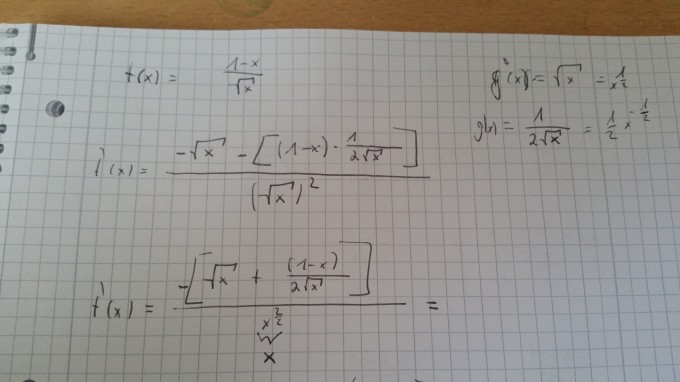 f(x) = (1-x)/√x
g'(x) = √x = x^(1/2)
g(x) = 1/(2√x) = 1/2 x^(-1/2)
f'(x) = (-√x - [(1-x) · 1/(2√x)])/(√x)^2
f'(x) = (-[√x + (1-x)/(2√x)])/x^(2/2) =
x